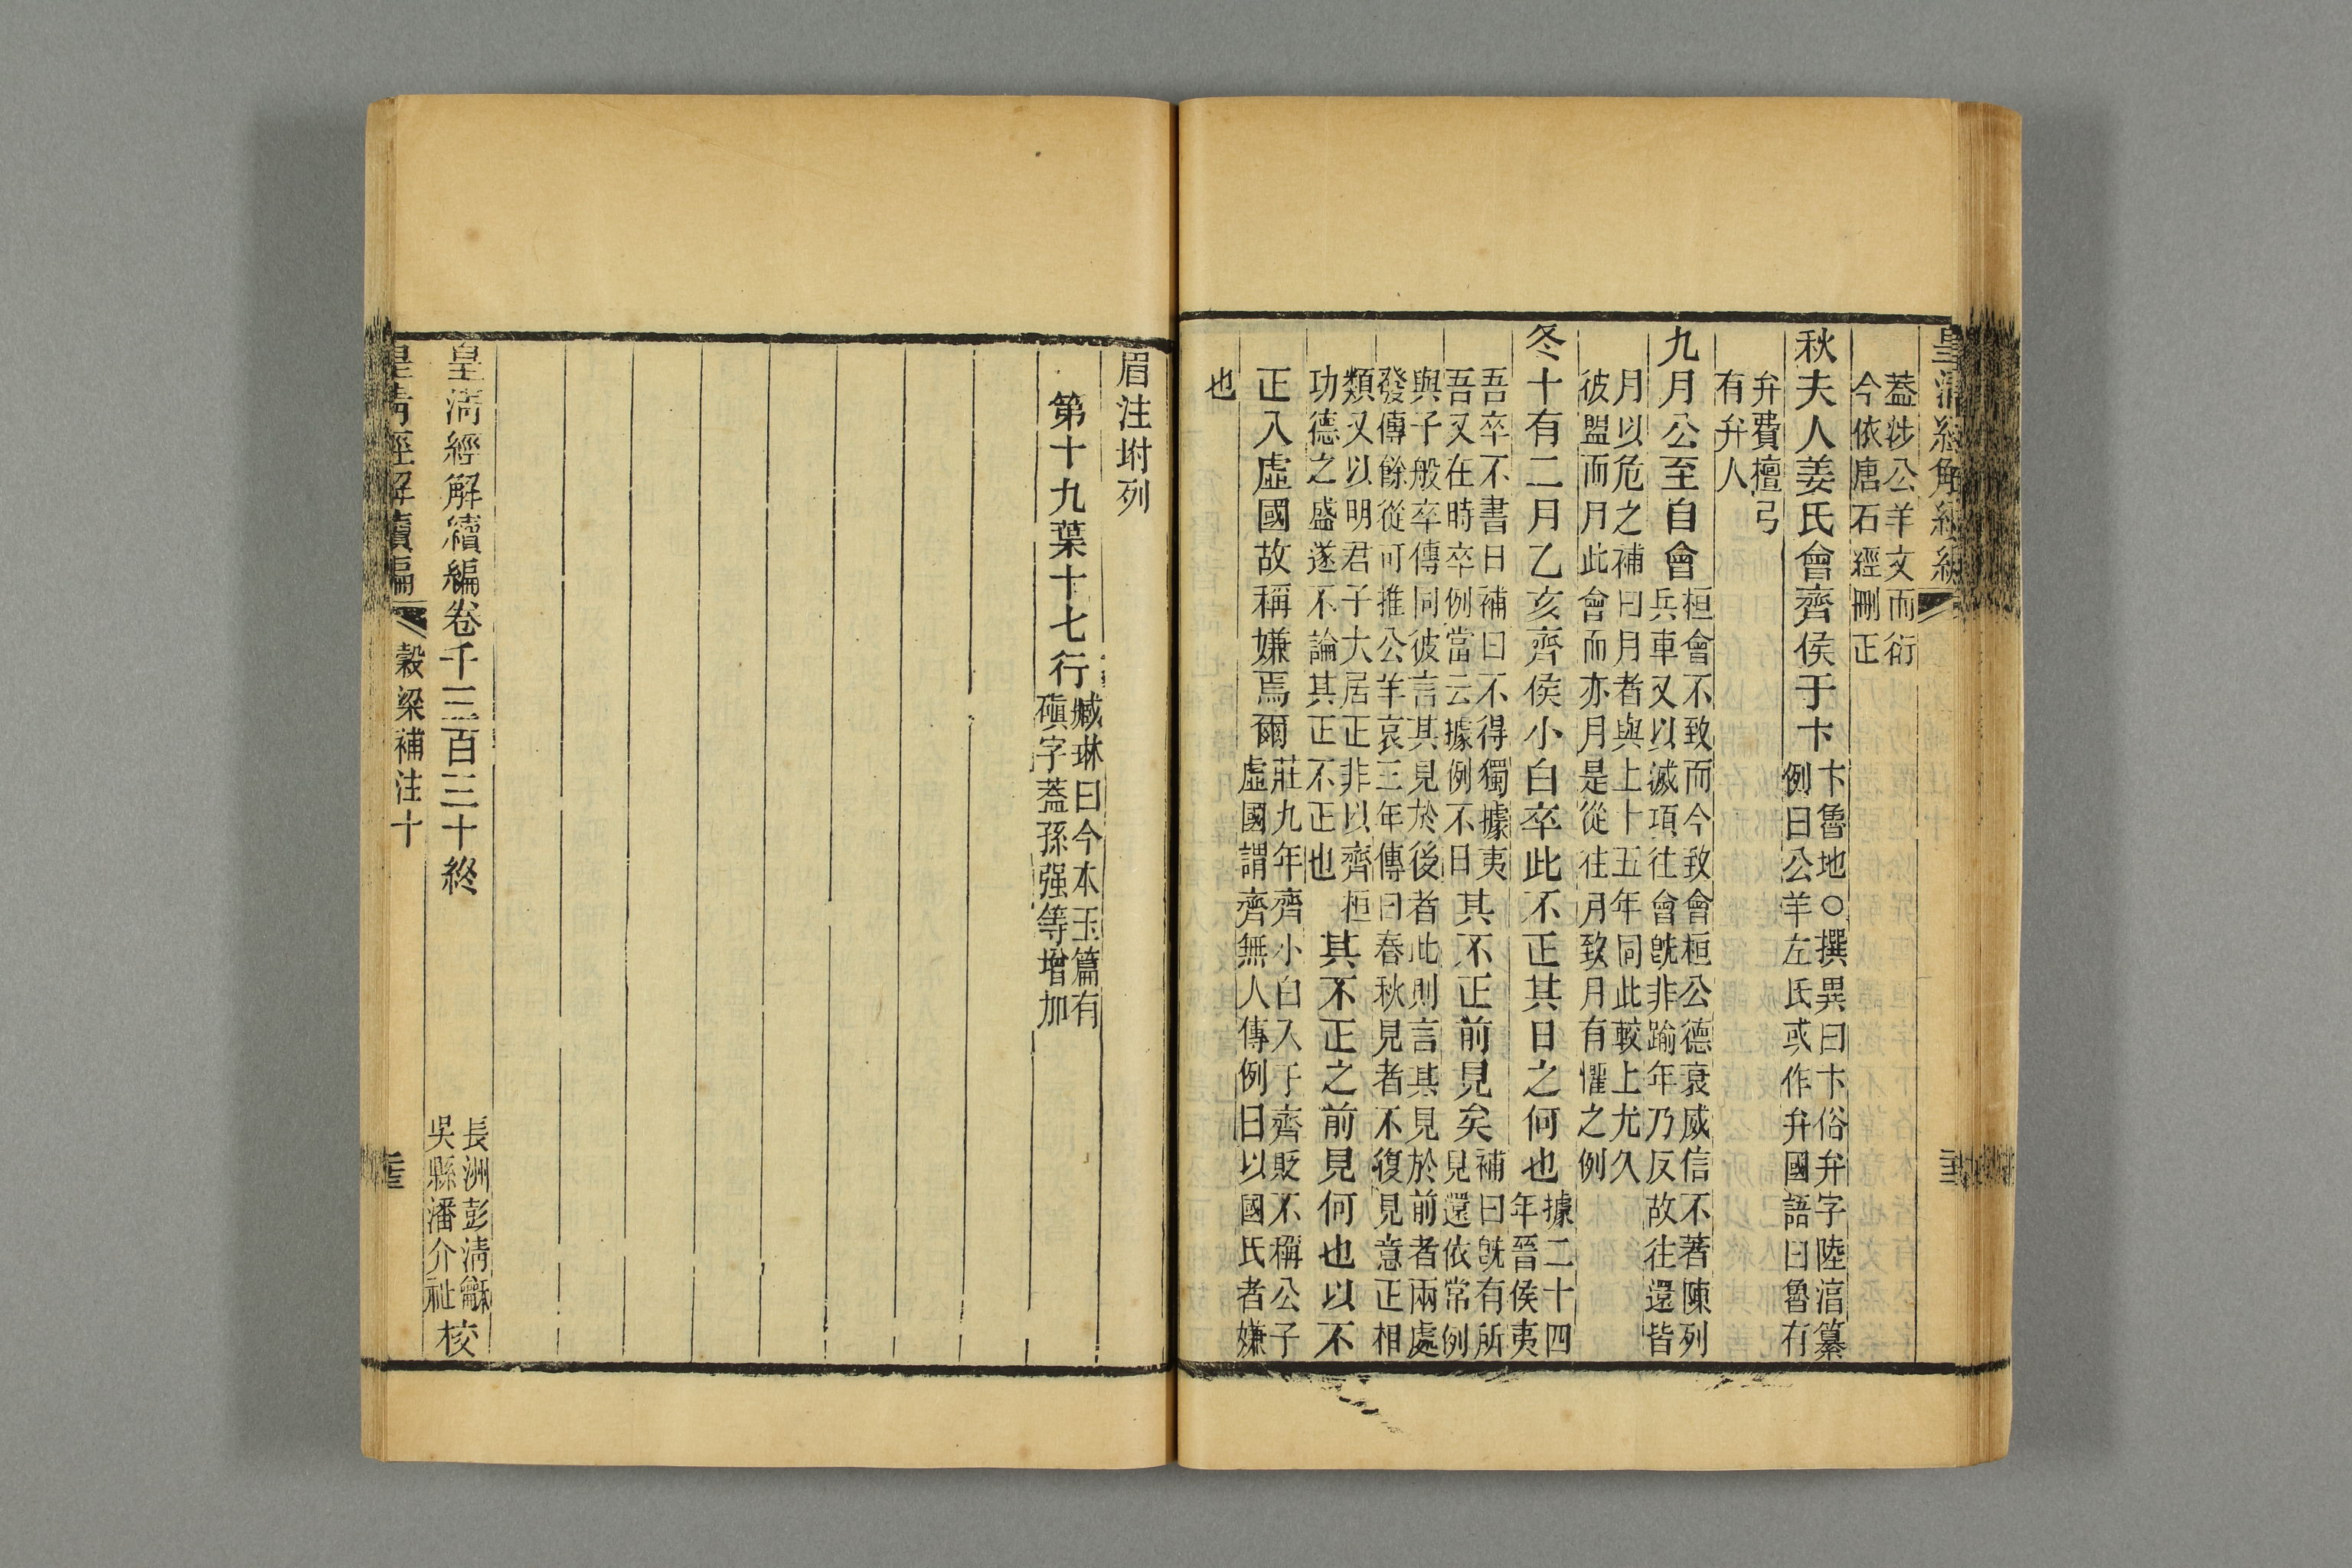 皇清經解續編
蓋涉公羊文而衍
今依唐石經刪正
秋夫人姜氏會齊侯于卞
卞魯地○撰異曰卞俗弁字陸淳纂
例曰公羊左氏或作弁國語曰魯有
弁費檀弓
有弁人
九月公至自會
桓會不致而今致會桓公德衰威信不著陳列
兵車又以滅項往會旣非踰年乃反故往還皆
月以危之補曰月者與上十五年同此較上尤久
彼盟而月此會而亦月是從往月致月有懼之例
冬十有二月乙亥齊侯小白卒此不正其日之何也
據二十四
年晉侯夷
吾卒不書日補曰不得獨據夷
吾又在時卒例當云據例不日
其不正前見矣
補曰旣有所
見還依常例
與子般卒傳同彼言其見於後者此則言其見於前者兩處
發傳餘從可推公羊哀三年傳曰春秋見者不復見意正相
類又以明君子大居正非以齊桓
功德之盛遂不論其正不正也
其不正之前見何也以不
正入虛國故稱嫌焉爾
莊九年齊小白入于齊貶不稱公子
虛國謂齊無人傳例曰以國氏者嫌
也
眉注坿列
第十九葉十七行
臧琳曰今本玉篇有
磌字蓋孫强等增加
皇淸經解續編卷千三百三十終
長洲彭淸龢
吳縣潘介祉
校
皇清經解續編
穀梁補注十